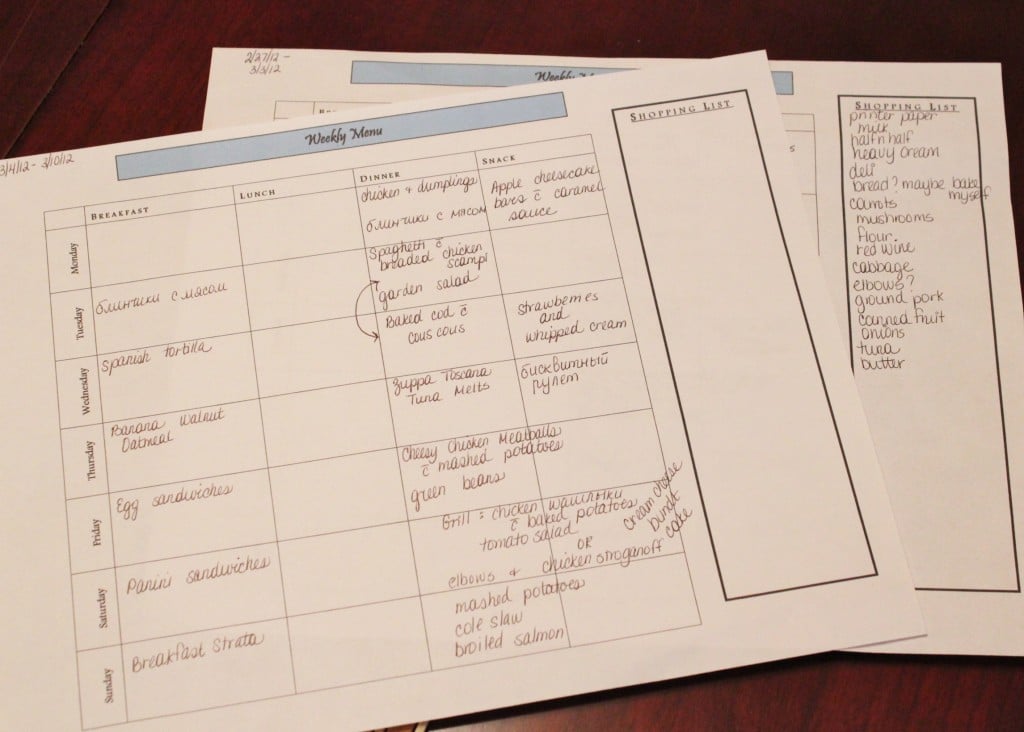 3/4/12 - 3/10/12
Weekly Menu
Breakfast
Lunch
Dinner
Snack
Shopping List
Monday
chicken & dumplings
блинчики с мясом
Apple cheesecake
bars c̄ caramel
sauce
Tuesday
блинчики с мясом
Spaghetti c̄
breaded chicken
scampi
garden salad
Wednesday
Spanish tortilla
Baked cod c̄
cous cous
strawberries
and
whipped cream
Thursday
Banana Walnut
Oatmeal
Zuppa Toscana
Tuna Melts
бисквитный
рулет
Friday
Egg sandwiches
Cheesy Chicken Meatballs
c̄ mashed potatoes
green beans
Saturday
Panini sandwiches
Grill: chicken шашлыки
c̄ baked potatoes
tomato salad
OR
elbows & chicken stroganoff
cream cheese
bundt
cake
Sunday
Breakfast Strata
mashed potatoes
cole slaw
broiled salmon
2/27/12 -
3/3/12
Weekly
Shopping List
printer paper
milk
half n half
heavy cream
deli
bread? maybe bake
myself
carrots
mushrooms
flour
red wine
cabbage
elbows?
ground pork
canned fruit
onions
tuna
butter